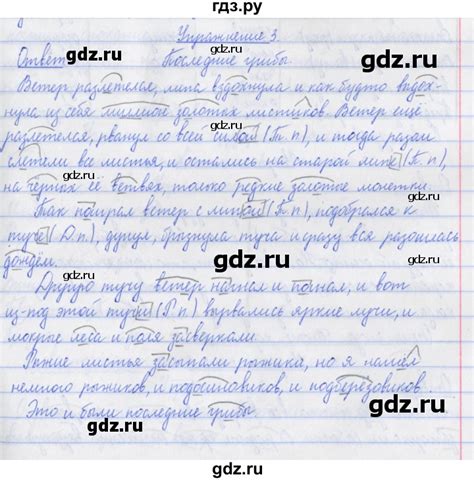 гдз.ру
Упражнение 3.
Ответ: Последние грибы.
gdz.ru gdz.ru
Ветер разлетелся, липа вздохнула и как будто выдох-
нула из себя миллион золотых листиков. Ветер ещё
gdz.ru
разлетелся, рванул со всей силой (Т. п), и тогда разом
слетели все листья, и остались на старой липе (П. п),
на чёрных её ветвях, только редкие золотые монетки.
gdz.ru gdz.ru
Так поиграл ветер с липой (Т. п), подобрался к
туче (Д. п), дунул, брызнула туча и сразу вся разошлась
gdz.ru
дождём.
Другую тучу ветер нагнал и погнал, и вот
gdz.ru gdz.ru
из-под этой тучи (Р. п) вырвались яркие лучи, и
мокрые леса и поля засверкали.
gdz.ru
Рыжие листья засыпали рыжики, но я нашёл
немного рыжиков, и подосиновиков, и подберёзовиков.
Это и были последние грибы.
gdz.ru gdz.ru